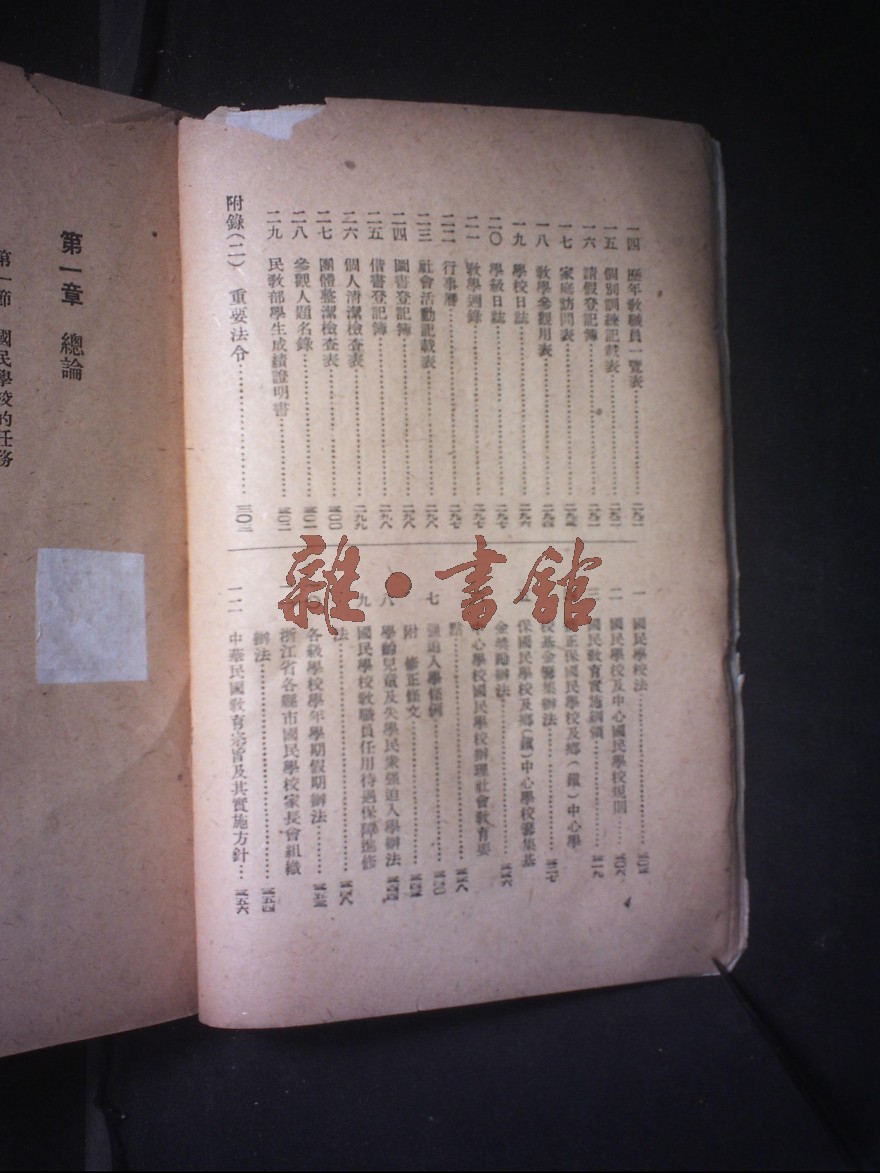 一四 歷年教職員一覽表
一五 個別訓練記載表
一六 請假登記簿
一七 家庭訪問表
一八 教學參觀用表
一九 學校日誌
二〇 學級日誌
二一 教學週錄
二二 行事曆……二九七
二三 社會活動記載表……二九八
二四 圖書登記簿……二九八
二五 借書登記簿……二九八
二六 個人清潔檢查表……二九九
二七 團體整潔檢查表……三〇〇
二八 參觀人題名錄……三〇一
二九 民教部學生成績證明書……三〇二
附錄(二) 重要法令……三〇三
一 國民學校法
二 國民學校及中心國民學校規則……三〇六
三 國民教育實施綱領……三一九
正保國民學校及鄉(鎮)中心學
校基金籌集辦法
保國民學校及鄉(鎮)中心學校籌集基
金獎勵辦法……三三六
中心學校國民學校辦理社會教育要
點……三三八
七 強迫入學條例
附 修正條文
八 學齡兒童及失學民衆強迫入學辦法
九 國民學校教職員任用待遇保障進修
法……三四八
各級學校學年學期假期辦法
浙江省各縣市國民學校家長會組織
辦法……三五四
一二 中華民國教育宗旨及其實施方針…三五六
雜·書館
第一章 總論
第一節 國民學校的任務